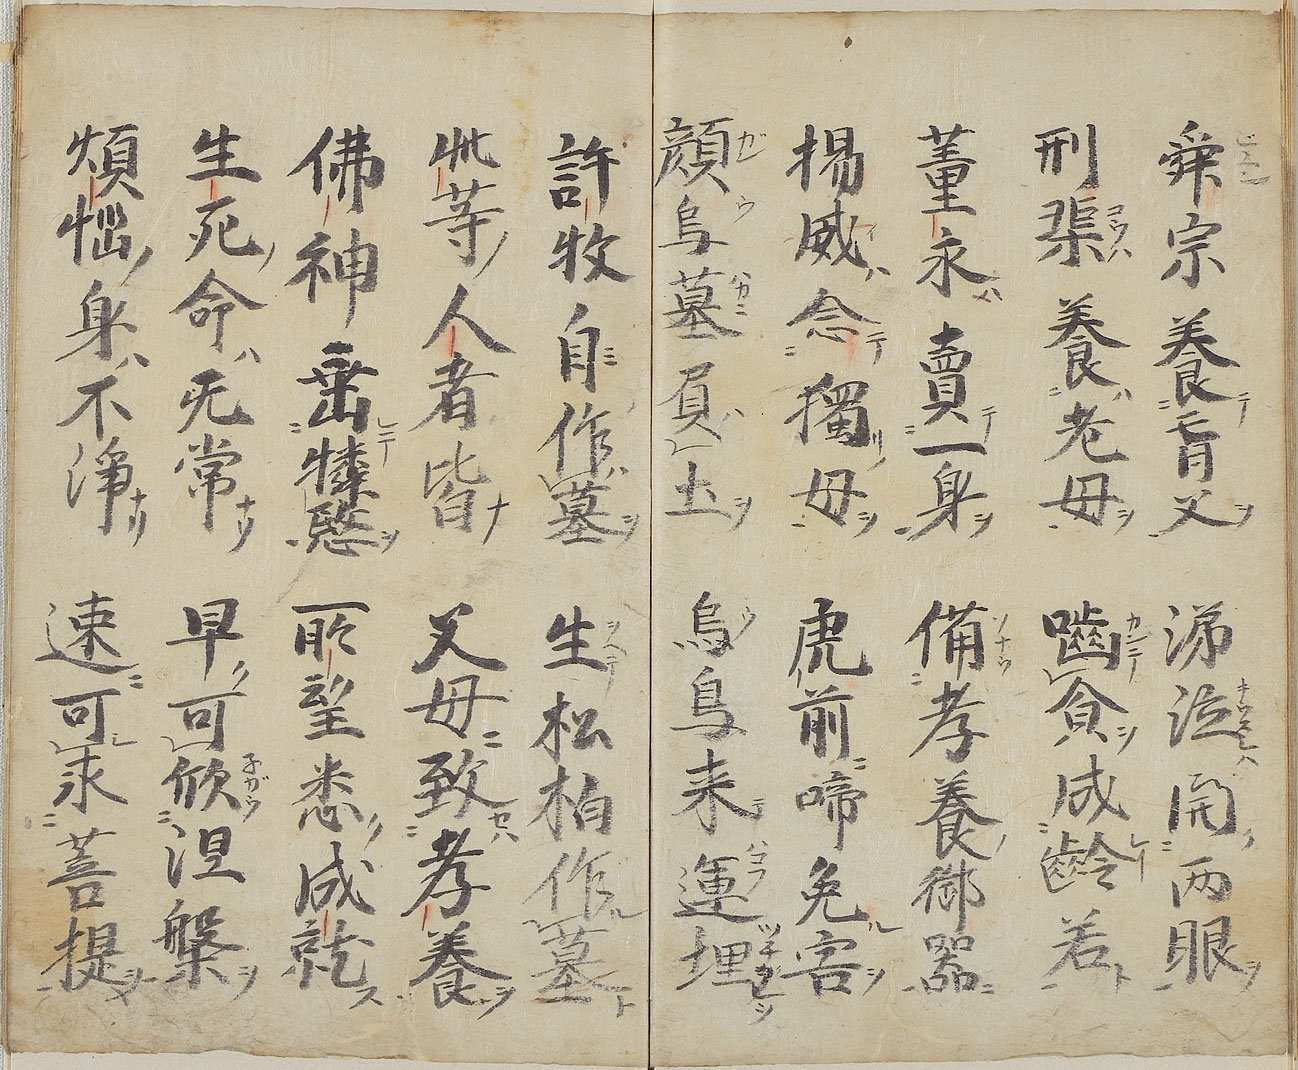 舜宗養盲父 涕泣開両眼
刑渠養老母 噛食成齢若
董永賣一身 備孝養御器
楊威念獨母 虎前啼免害
顔烏墓負土 烏鳥来運埋
許牧自作墓 生松柏作墓
此等人者皆 父母致孝養
佛神垂憐愍 所望悉成就
生死命无常 早可欣涅槃
煩悩身不淨 速可求菩提